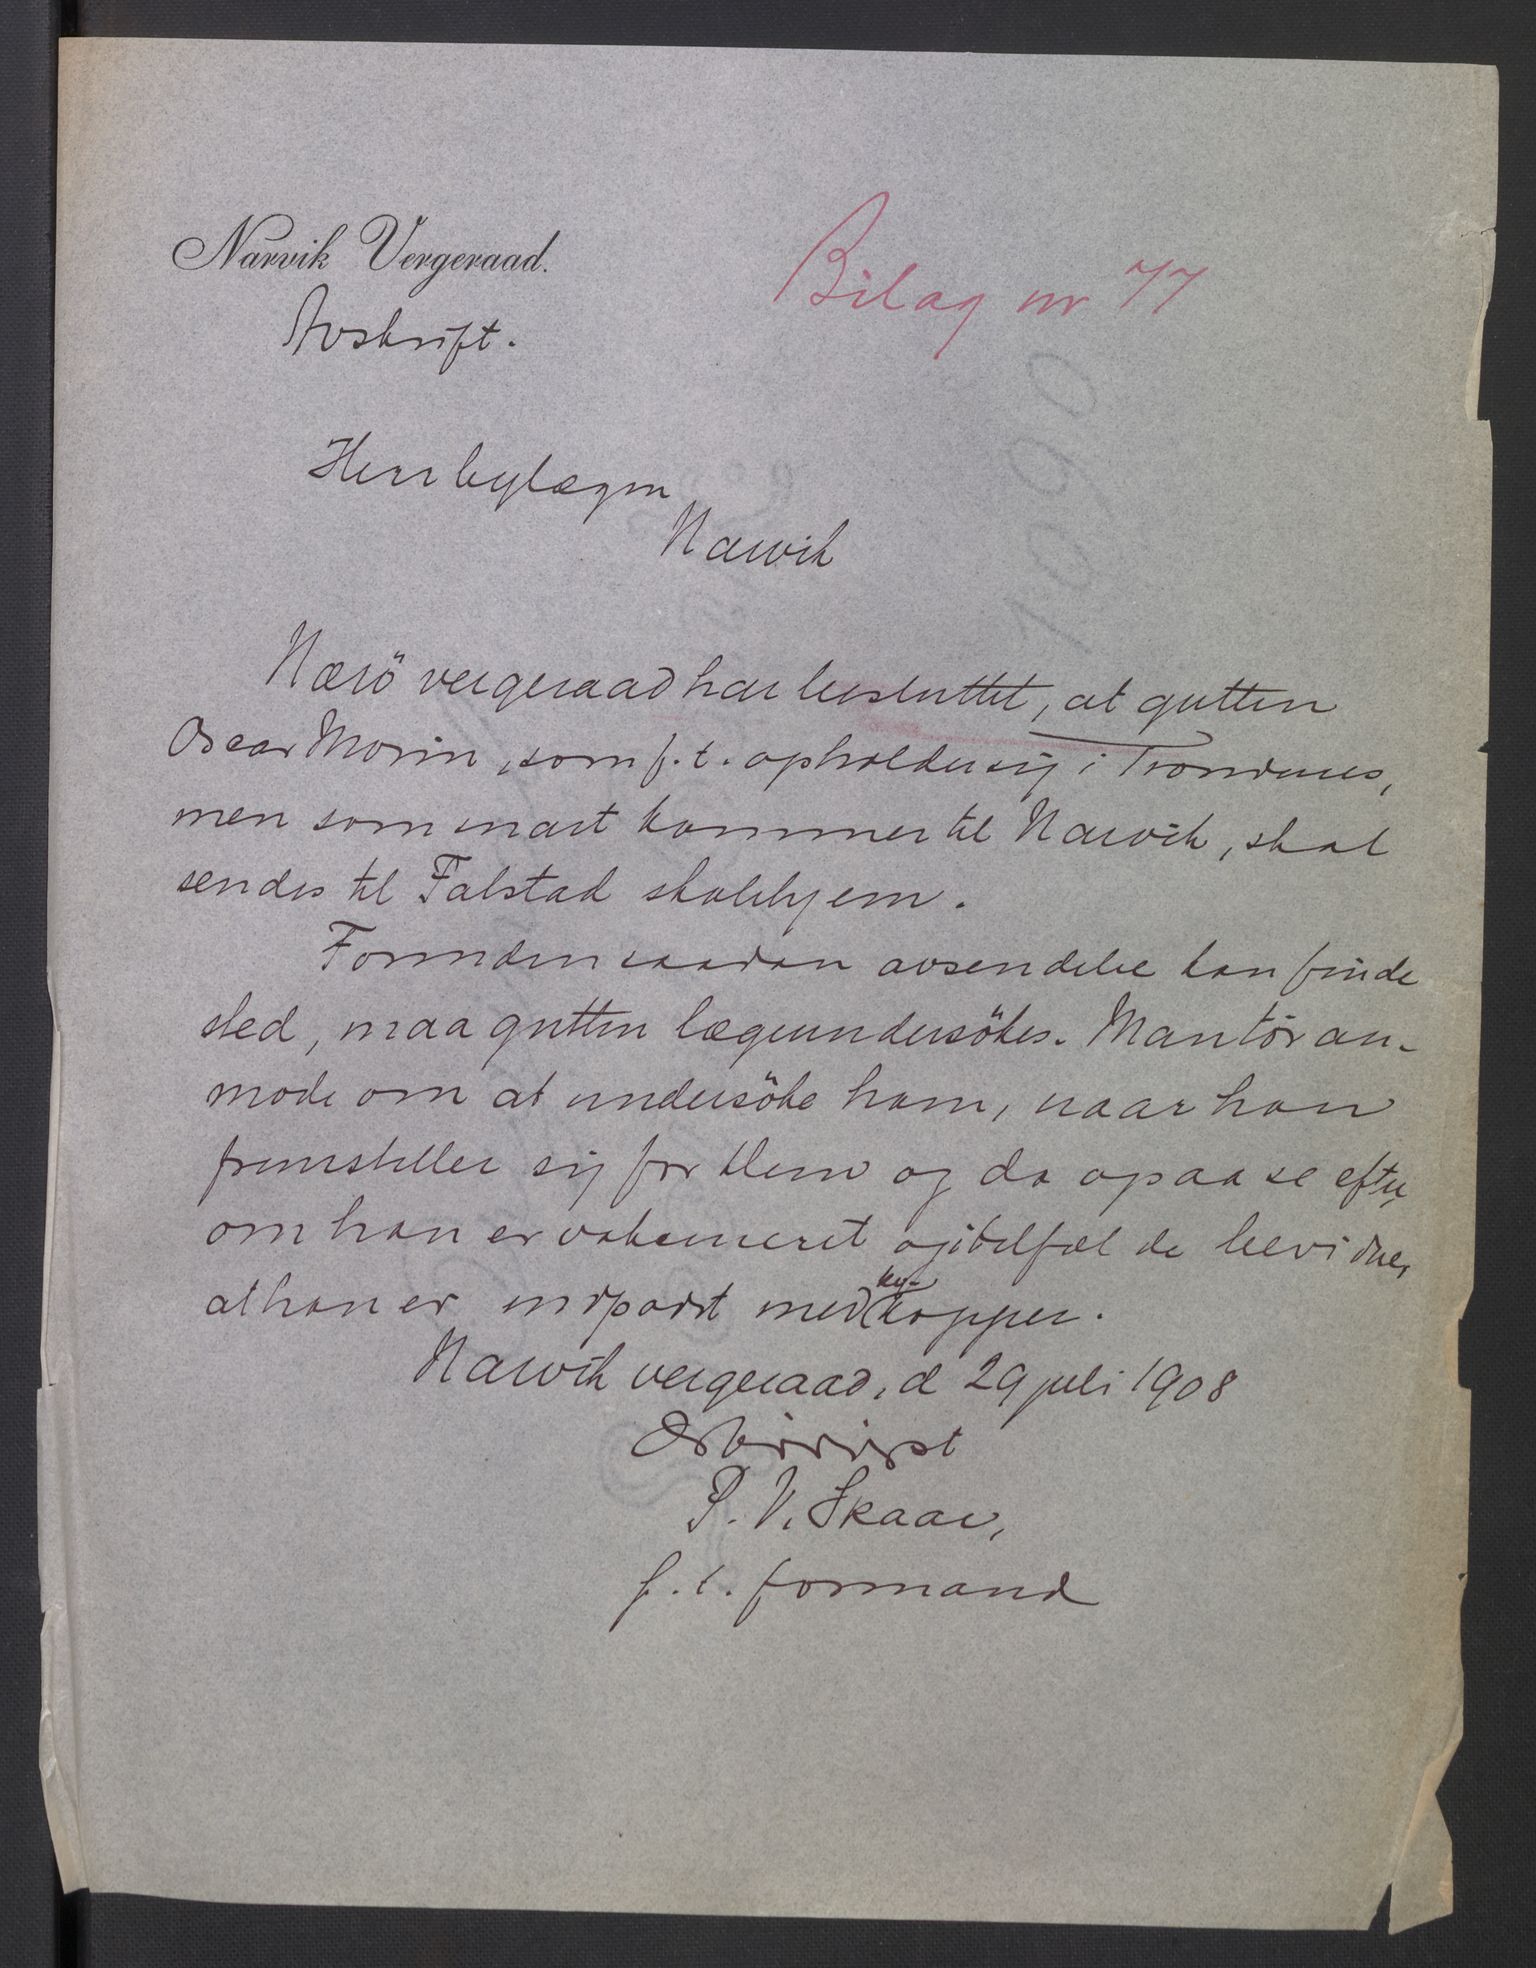 Narvik Vergeraad.
Bilag nr 77
Avskrift.
Herr bylægen
Narvik
Nærö vergeraad har besluttet, at gutten
Oscar Morin, som f. t. opholder sig i Trondenes,
men som snart kommer til Narvik, skal
sendes til Falstad skolehjem.
Forinden saadan avsendelse kan finde
sted, maa gutten lægeundersökes. Man tör an-
mode om at undersöke ham, naar han
fremstiller sig for Dem og da ogsaa se efter,
om han er vaksineret og i tilfæl de bevidne,
at han er indpodt med ku-
kopper.
Narvik vergeraad, d 29 juli 1908
Ærbödigst
P. V. Skaar,
f. t. formand